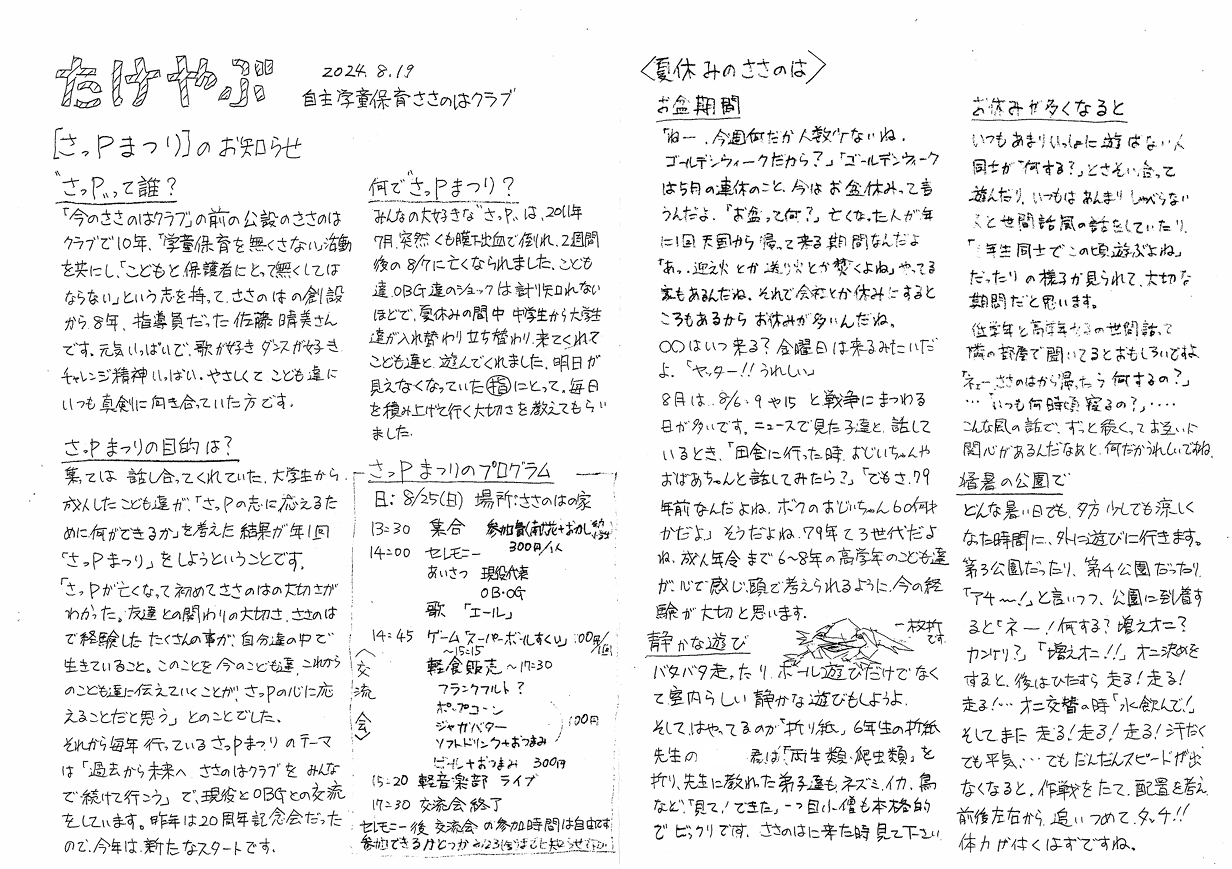 たけやぶ
2024.8.19
自主学童保育ささのはクラブ
[さっPまつり]のお知らせ
"さっP"って誰?
「今のささのはクラブ」の前の公設のささのは
クラブで10年、「学童保育を無くさない」活動
を共にし、「こどもと保護者にとって無くしては
ならない」という志を持って、ささのはの創設
から8年、指導員だった佐藤晴美さん
です。元気いっぱいで、歌が好きダンスが好き
チャレンジ精神いっぱい、やさしくてこども達に
いつも真剣に向き合っていた方です。
さっPまつりの目的は?
葉ては話し合ってくれていた、大学生から
成人したこども達が、「さっPの志に応えるた
めに何ができるか」を考えた結果が年1回
「さっPまつり」をしようということです。
「さっPが亡くなって初めてささのはの大切さが
わかった。友達との関わりの大切さ、ささのは
で経験したたくさんの事が、自分達の中で
生きていること。このことを今のこども達、これから
のこども達に伝えていくことが、さっPの心に応
えることだと思う」とのことでした。
それから毎年行っているさっPまつりのテーマ
は「過去から未来へ ささのはクラブを みんな
で続けて行こう」で、現役とOBGとの交流
をしています。昨年は20周年記念会だった
ので、今年は、新たなスタートです。
何で"さっPまつり?
みんなの大好きな"さっP"は、2011年
7月、突然くも膜下出血で倒れ、2週間
後の8/7に亡くなられました。こども
達、OBG達のショックは計り知れない
ほどで、夏休みの間中 中学生から大学生
達が入れ替わり立ち替わり、来てくれて
こども達と、遊んでくれました。明日が
見えなくなっていた㊟にとって、毎日
を積み上げて行く大切さを教えてもらい
ました。
さっPまつりのプログラム
日:8/25(日) 場所:ささのはの家
13:30 集合 参加費
300円/1人
14:00 セレモニー
あいさつ 現役代表
OB・OG
歌 「エール」
14:45 ゲーム スーパーボールすくい
~15:15
〈交流会〉
軽食販売 ~17:30
フランクフルト?
ポップコーン
ジャガバター
ソフトドリンク+おつまみ
100円
ビール+おつまみ 300円
15:20 軽音楽部 ライブ
17:30 交流会終了
セレモニー後、交流会の参加時間は自由です
〈夏休みのささのは〉
お盆期間
「ねー、今週何だか人数少ないね。
ゴールデンウィークだから?」「ゴールデンウィーク
は5月の連休のこと、今はお盆休みって言
うんだよ。「お盆って何?」亡くなった人が年
に1回天国から帰って来る期間なんだよ
「あっ、迎え火とか送り火とか焚くよね」やってる
家もあるんだね。それで会社とか休みにすると
ころもあるからお休みが多いんだね。
〇〇はいつ来る?金曜日は来るみたいだ
よ。「ヤッター!!うれしい」
8月は、8/6・9や15 と戦争にまつわる
日が多いです。ニュースで見た子達と、話して
いるとき、「田舎に行った時、おじいちゃんや
おばあちゃんと話してみたら?」「でもさ、79
年前なんだよね、ボクのおじいちゃん60何才
かだよ」そうだよね、79年て3世代だよ
ね。成人年令まで6~8年の高学年のこども達
が、心で感じ、頭で考えられるように、今の経
験が大切と思います。
静かな遊び
一枚折
です
バタバタ走ったり、ボール遊びだけでなく
て室内らしい静かな遊びもしようよ。
そしてはやってるのが「折り紙」6年生の折紙
先生の 君は「両生類・爬虫類」を
折り、先生に教わった弟子達も、ネズミ、イカ、鳥
など、「見て!できた」一つ目小僧も本格的
でビックリです。ささのはに来た時見て下さい
お休みが多くなると
いつもあまりいっしょに遊ばない人
同士が「何する?」とさそい合って
遊んだり、いつもはあんまりしゃべらない
人と世間話風の話をしていたり、
年生同士でこの頃遊ぶよね」
だったりの様子が見られて、大切な
期間だと思います。
低学年と高学年 の世間話って
隣の部屋で聞いてるとおもしろいですよ
「ネェー、ささのはから帰ったら何するの?」
…「いつも何時頃寝るの?」・・・・
こんな風の話で、ずっと続くってお互いに
関心があるんだなあと、何だかうれしいですね。
猛暑の公園で
どんな暑い日でも、夕方少しでも涼しく
なた時間に、外に遊びに行きます。
第3公園だったり、第4公園だったり
「アチ~!」と言いつつ、公園に到着す
ると「ネー!何する?増えオニ?
カンケリ?」「増えオニ!!」オニ決めを
すると、後はひたすら 走る!走る!
走る!…オニ交替の時「水飲んで!」
そしてまた 走る!走る!走る!汗だく
でも平気、…でもだんだんスピードが出
なくなると、作戦をたて、配置を考え
前後左右から、追いつめて、タッチ!!
体力が付くはずですね。